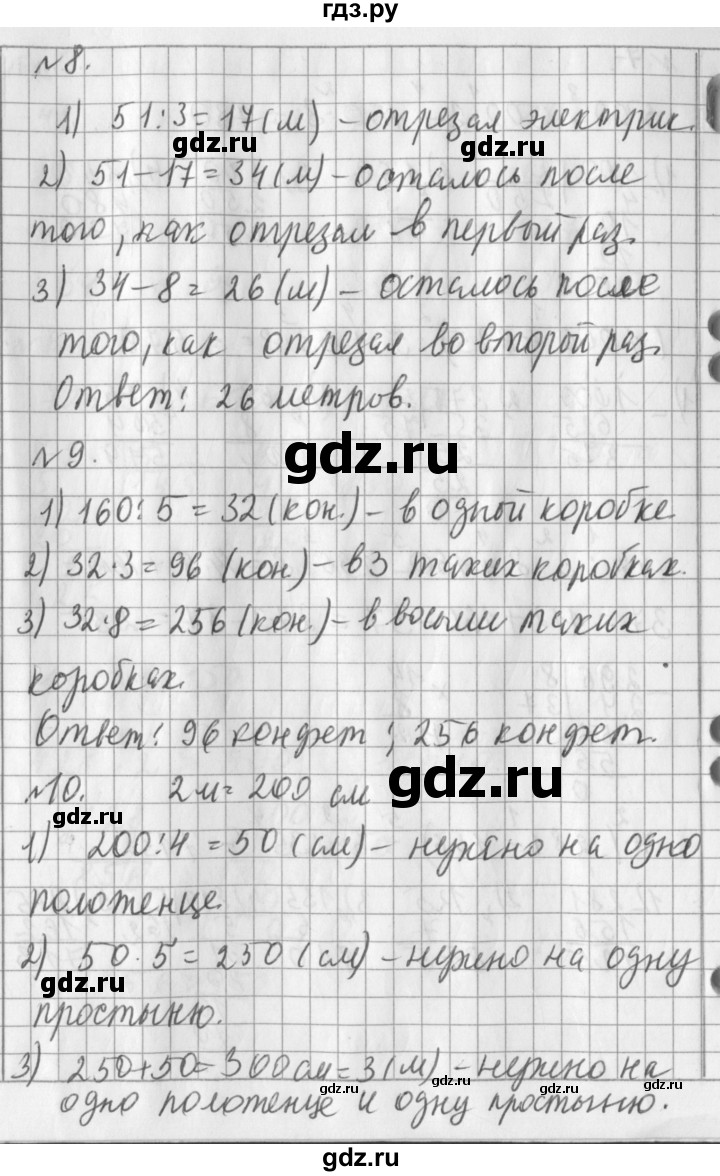 гдз.ру
№8.
1) 51:3=17(м) – отрезал электрик.
gdz.ru gdz.ru
2) 51–17=34(м) – осталось после
того, как отрезал в первый раз.
3) 34–8=26(м) – осталось после
gdz.ru gdz.ru
того, как отрезал во второй раз.
Ответ: 26 метров.
gdz.ru
№9.
1) 160:5=32(кон.) – в одной коробке
2) 32·3=96 (кон.) – в 3 таких коробках.
gdz.ru gdz.ru
3) 32·8=256(кон.) – в восьми таких
коробках.
Ответ: 96 конфет; 256 конфет.
gdz.ru gdz.ru
№10. 2м=200 см
gdz.ru
1) 200:4=50(см) – нужно на одно
полотенце.
2) 50·5=250(см) – нужно на одну
gdz.ru gdz.ru
простыню.
3) 250+50=300см=3(м) – нужно на
gdz.ru gdz.ru gdz.ru
одно полотенце и одну простыню.
gdz.ru